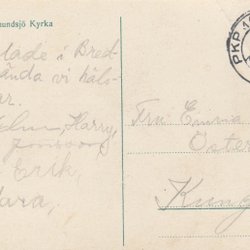 mundsjö Kyrka
lade i Bred
ända vi häls-
ar.
Harry,
Erik,
PKP
Fru Emma
Öster
Kung